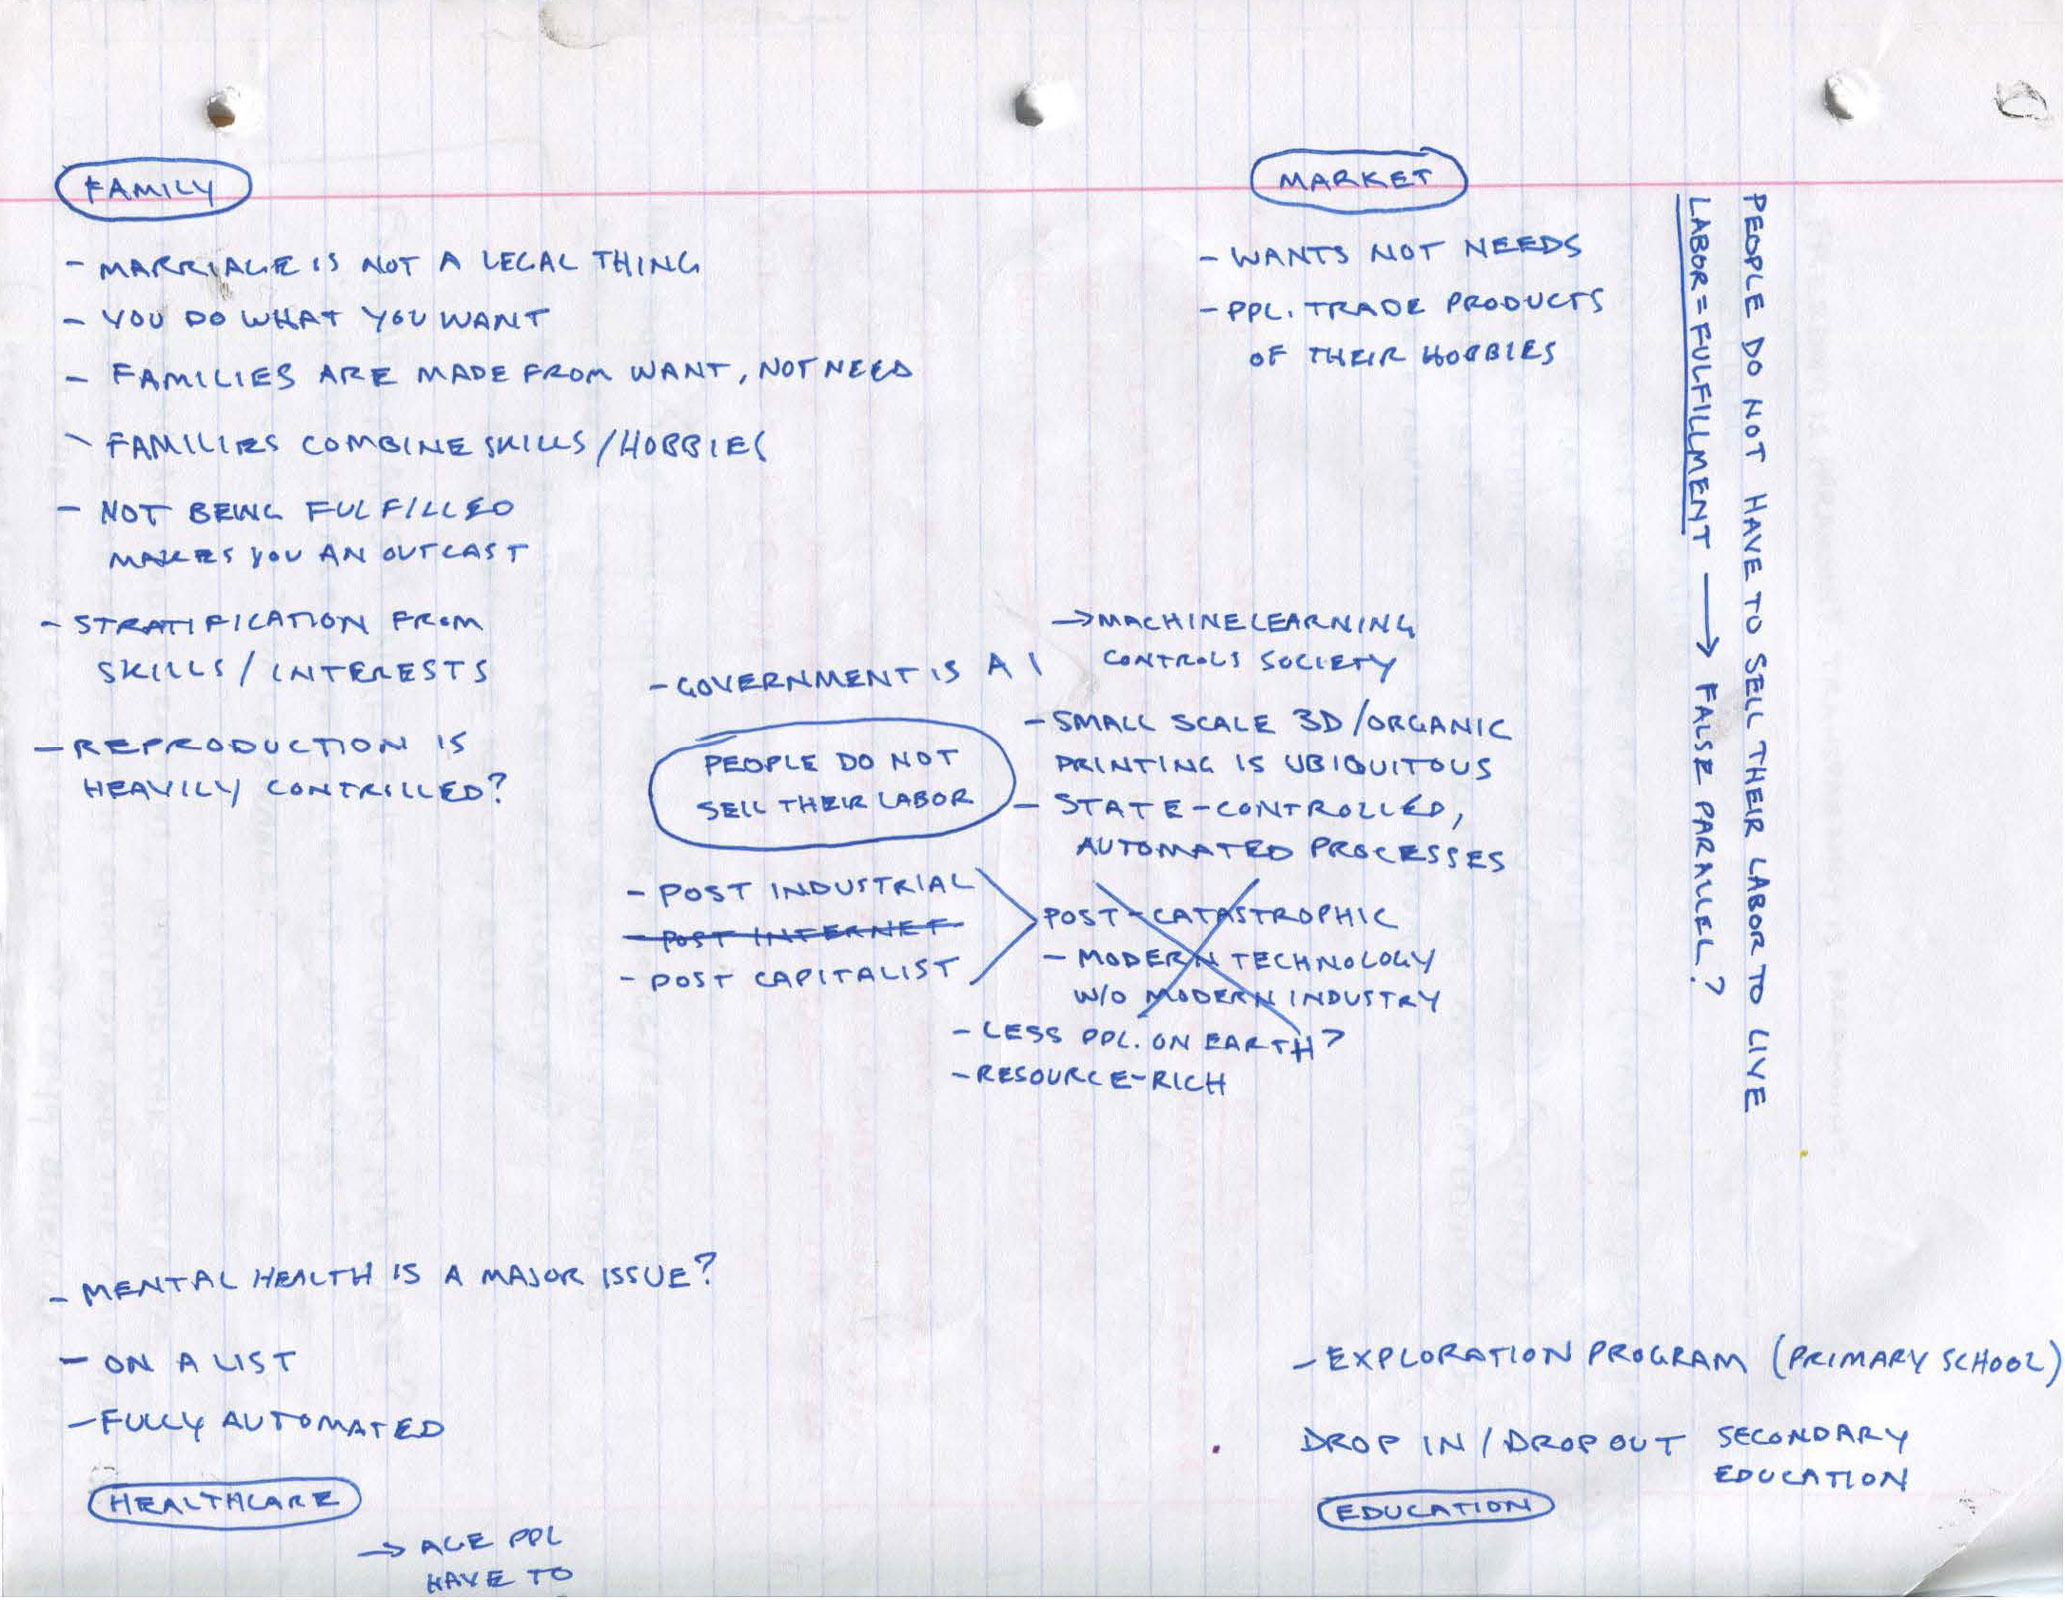 FAMILY
- MARRIAGE IS NOT A LEGAL THING
- YOU DO WHAT YOU WANT
- FAMILIES ARE MADE FROM WANT, NOT NEED
- FAMILIES COMBINE SKILLS/HOBBIES
- NOT BEING FULFILLED
MAKES YOU AN OUTCAST
- STRATIFICATION FROM
SKILLS/INTERESTS
- REPRODUCTION IS
HEAVILY CONTRILLED?
MARKET
- WANTS NOT NEEDS
- PPL. TRADE PRODUCTS
OF THEIR HOBBIES
PEOPLE DO NOT HAVE TO SELL THEIR LABOR TO LIVE
LABOR = FULFILLMENT → FALSE PARALLEL?
- GOVERNMENT IS AI
→ MACHINE LEARNING
CONTROLS SOCIETY
PEOPLE DO NOT
SELL THEIR LABOR
- SMALL SCALE 3D/ORGANIC
PRINTING IS UBIQUITOUS
- STATE-CONTROLLED,
AUTOMATED PROCESSES
- POST INDUSTRIAL
- POST INTERNET
- POST CAPITALIST
POST-CATASTROPHIC
- MODERN TECHNOLOGY
W/O MODERN INDUSTRY
- LESS PPL. ON EARTH?
- RESOURCE-RICH
- MENTAL HEALTH IS A MAJOR ISSUE?
- ON A LIST
- FULLY AUTOMATED
HEALTHCARE
→ AGE PPL
HAVE TO
- EXPLORATION PROGRAM (PRIMARY SCHOOL)
DROP IN/DROP OUT SECONDARY
EDUCATION
EDUCATION